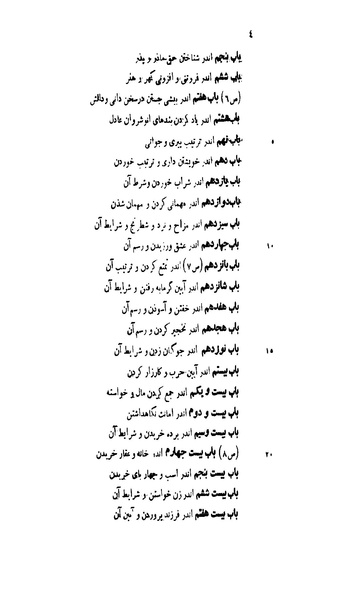 ٤
باب پنجم اندر شناختن حق مادر و پدر
باب ششم اندر فروتنی و افزونی گهر و هنر
(ص٦) باب هفتم اندر پیشی جستن درسخن دانی و دانش
باب هشتم اندر یاد کردن پندهای انوشروان عادل
باب نهم اندر ترتیب پیری و جوانی ٥
باب دهم اندر خویشتن داری و ترتیب خوردن
باب یازدهم اندر شراب خوردن وشرط آن
باب دوازدهم اندر مهمانی کردن و مهمان شدن
باب سیزدهم اندر مزاح و نرد و شطرنج و شرایط آن
باب چهاردهم اندر عشق ورزیدن و رسم آن ١٠
باب پانزدهم (ص٧) اندر تمتع کردن و ترتیب آن
باب شانزدهم اندر آیین گرمابه رفتن و شرایط آن
باب هفدهم اندر خفتن و آسودن و رسم آن
باب هجدهم اندر نخجیر کردن و رسم آن
باب نوزدهم اندر چوگان زدن و شرایط آن ١٥
باب بیستم اندر آیین حرب و کارزار کردن
باب بیست و یکم اندر جمع کردن مال و خواسته
باب بیست و دوم اندر امانت نگاهداشتن
باب بیست وسیم اندر برده خریدن و شرایط آن
(ص٨) باب بیست چهارم اندر خانه و عقار خریدن ٢٠
باب بیست پنجم اندر اسب و چهار پای خریدن
باب بیست ششم اندر زن خواستن و شرایط آن
باب بیست هفتم اندر فرزند پروردن و آیین آن